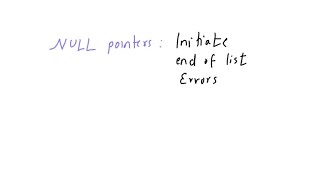 NULL pointers : Initiate
end of list
Errors